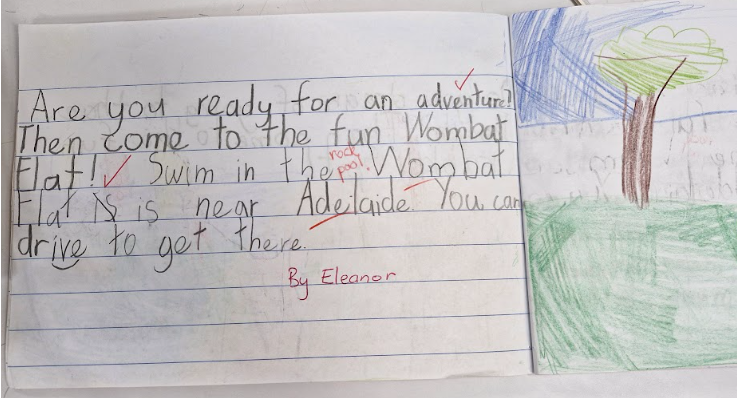 Are you ready for an adventure?
Then come to the fun Wombat
Flat! Swim in the rock pool. Wombat
Flat is is near Adelaide. You can
drive to get there.
By Eleanor